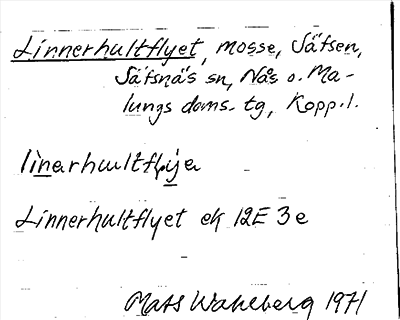 Linnerhultflyet, mosse, Säfsen,
Säfsnäs sn, Nås o. Ma-
lungs doms. tg, Kopp. l.
linerhultflyje
Linnerhultflyet ek 12E 3e
Mats Wahlberg 1971